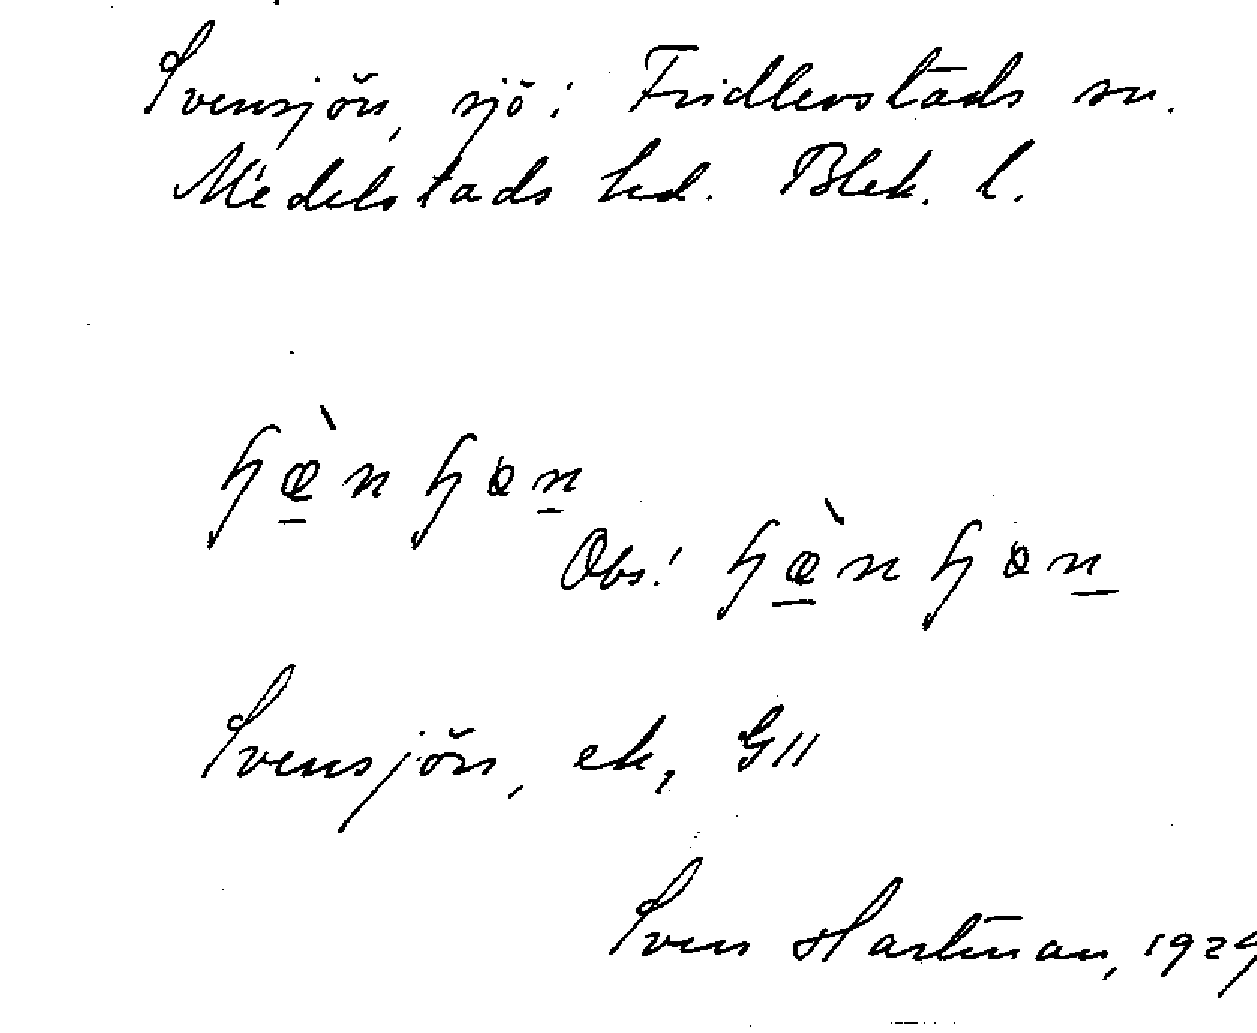 Svensjön, sjö i Fridlevstads sn.
Medelstads hd. Blek. l.
Obs!
Svensjön, ek, G11
Sven Hartman, 192